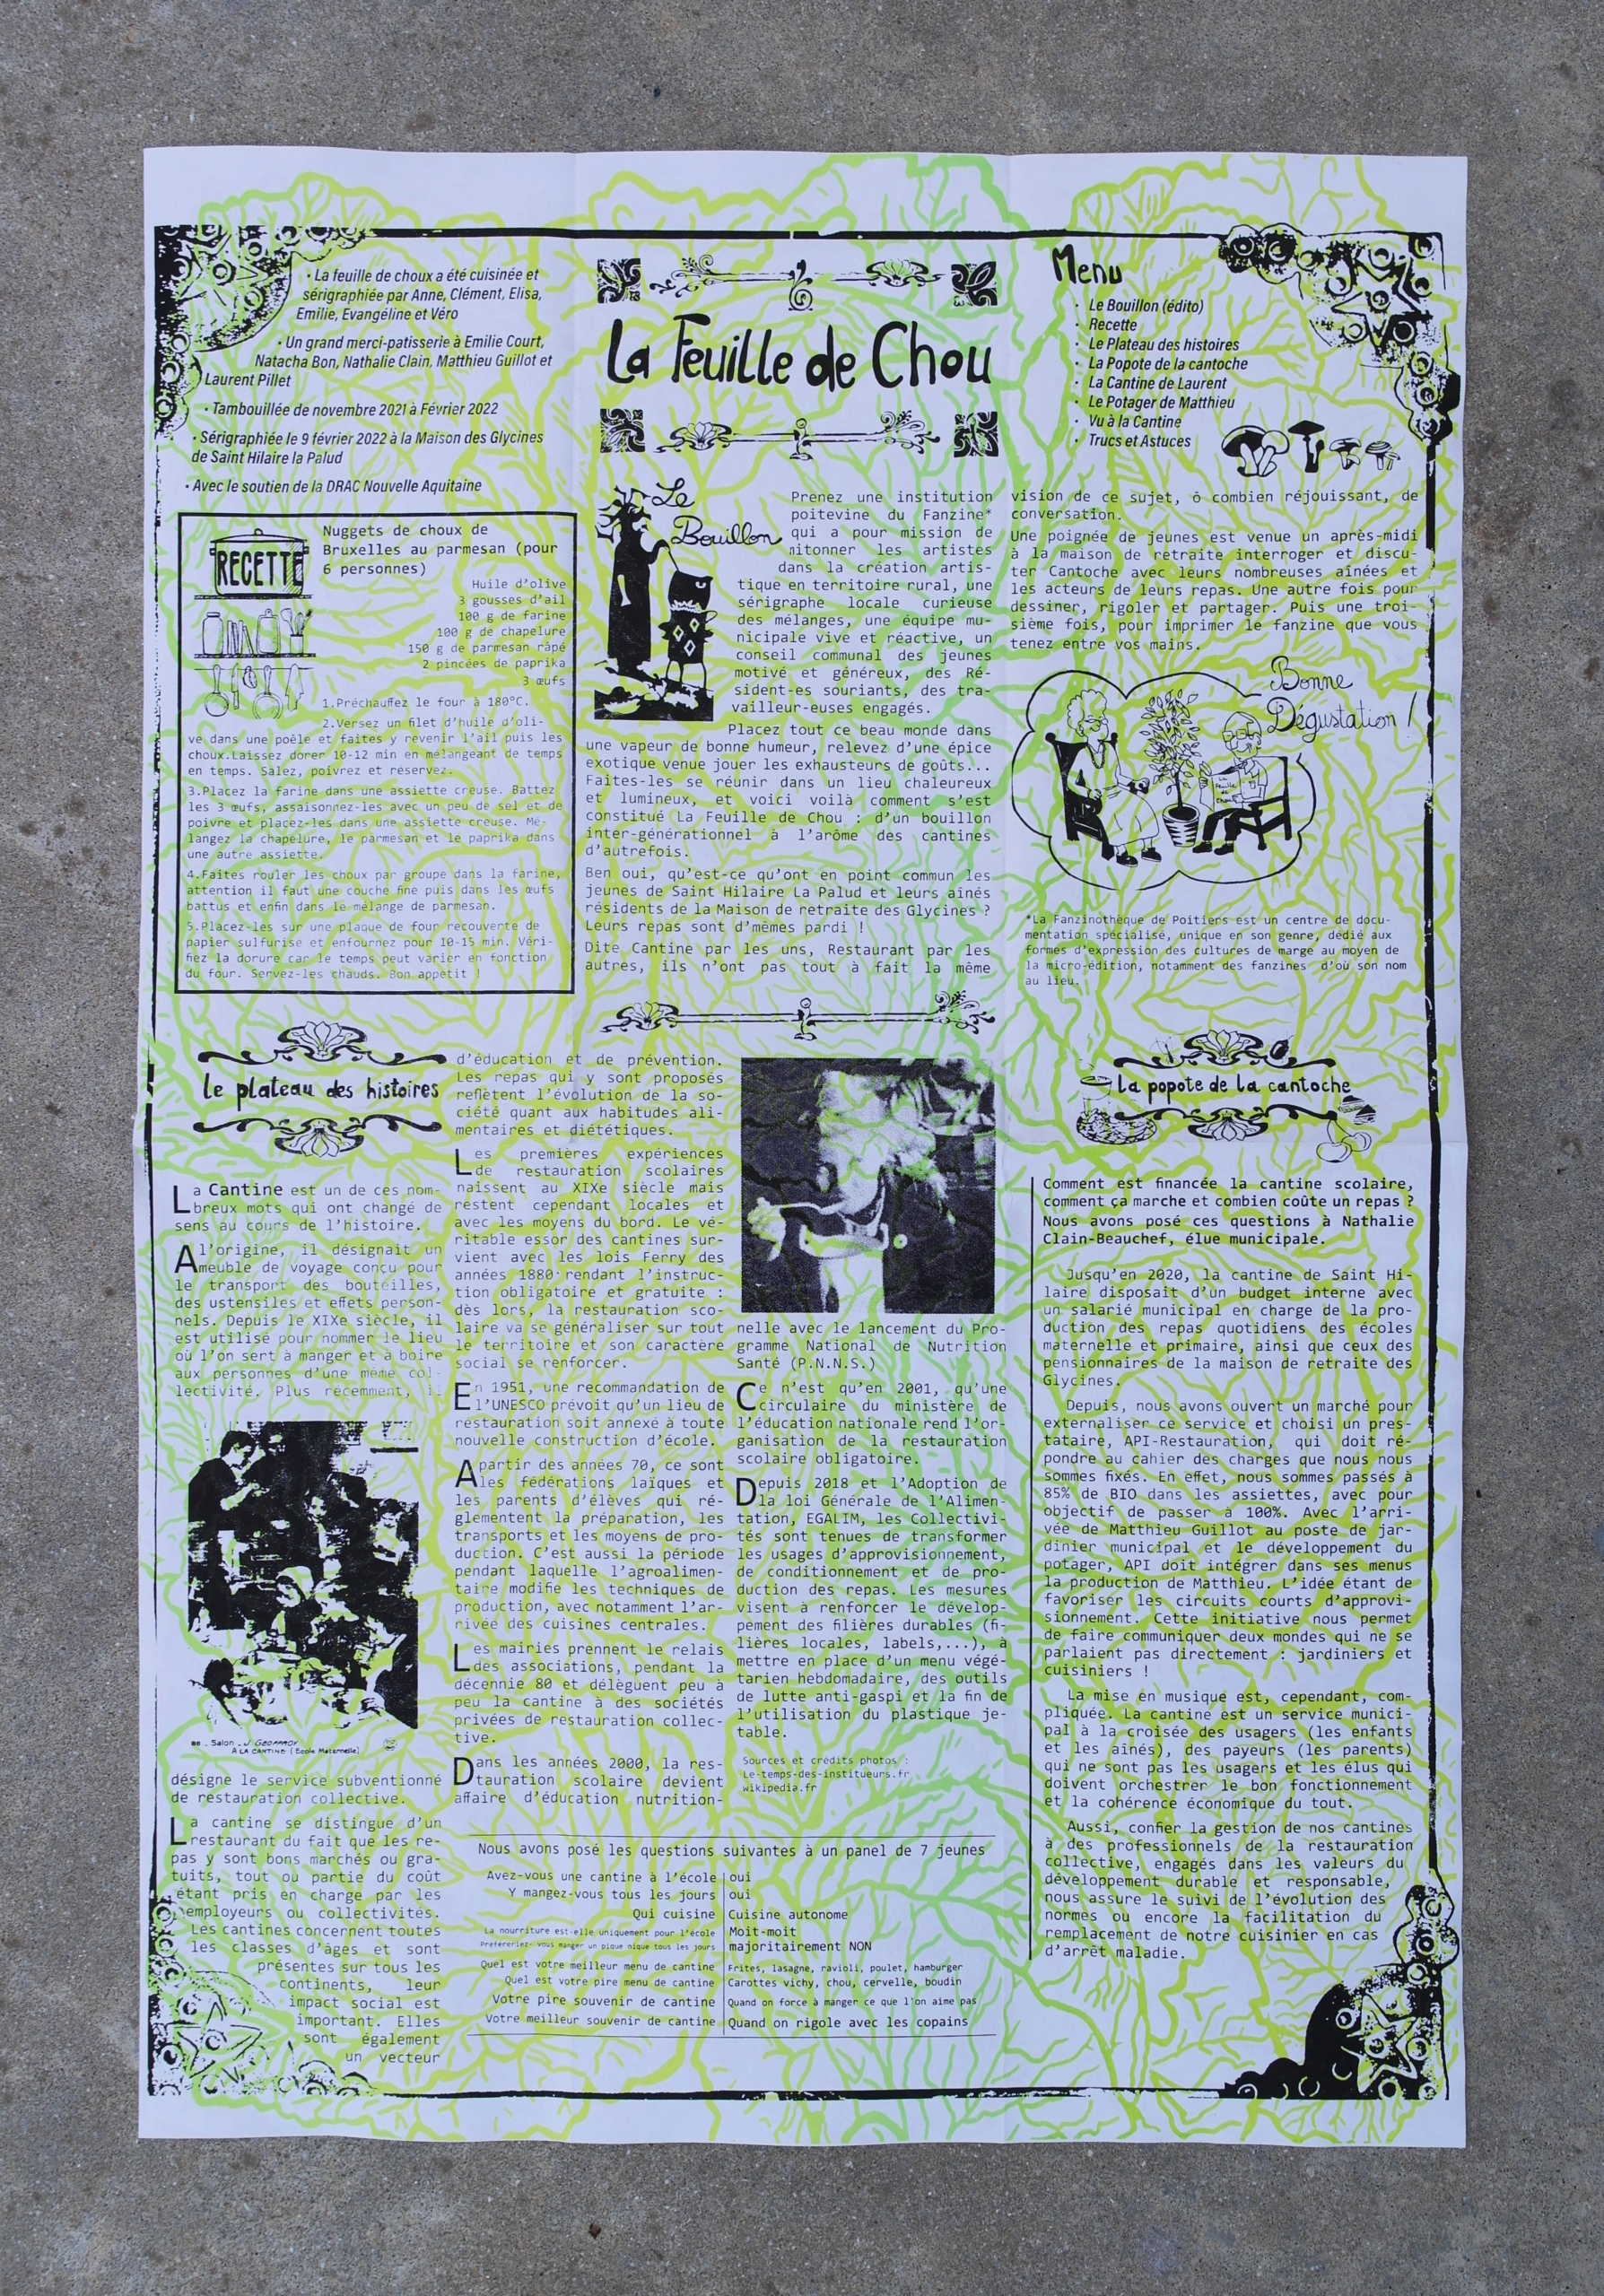 · La feuille de choux a été cuisinée et
sérigraphiée par Anne, Clément, Elisa,
Emilie, Evangéline et Véro
· Un grand merci-patisserie à Emilie Court,
Natacha Bon, Nathalie Clain, Matthieu Guillot et
Laurent Pillet
· Tambouillée de novembre 2021 à Février 2022
· Sérigraphiée le 9 février 2022 à la Maison des Glycines
de Saint Hilaire la Palud
· Avec le soutien de la DRAC Nouvelle Aquitaine
La Feuille de Chou
Menu
· Le Bouillon (édito)
· Recette
· Le Plateau des histoires
· La Popote de la cantoche
· La Cantine de Laurent
· Le Potager de Matthieu
· Vu à la Cantine
· Trucs et Astuces
RECETTE
Nuggets de choux de
Bruxelles au parmesan (pour
6 personnes)
Huile d'olive
3 gousses d'ail
100 g de farine
100 g de chapelure
150 g de parmesan râpé
2 pincées de paprika
3 œufs
1.Préchauffez le four à 180°C.
2.Versez un filet d'huile d'oli-
ve dans une poêle et faites y revenir l'ail puis les
choux.Laissez dorer 10-12 min en mélangeant de temps
en temps. Salez, poivrez et réservez.
3.Placez la farine dans une assiette creuse. Battez
les 3 œufs, assaisonnez-les avec un peu de sel et de
poivre et placez-les dans une assiette creuse. Mé-
langez la chapelure, le parmesan et le paprika dans
une autre assiette.
4.Faites rouler les choux par groupe dans la farine,
attention il faut une couche fine puis dans les œufs
battus et enfin dans le mélange de parmesan.
5.Placez-les sur une plaque de four recouverte de
papier sulfurisé et enfournez pour 10-15 min. Véri-
fiez la dorure car le temps peut varier en fonction
du four. Servez-les chauds. Bon appetit !
Le
Bouillon
Prenez une institution
poitevine du Fanzine*
qui a pour mission de
mitonner les artistes
dans la création artis-
tique en territoire rural, une
sérigraphe locale curieuse
des mélanges, une équipe mu-
nicipale vive et réactive, un
conseil communal des jeunes
motivé et généreux, des Ré-
sident-es souriants, des tra-
vailleur-euses engagés.
Placez tout ce beau monde dans
une vapeur de bonne humeur, relevez d'une épice
exotique venue jouer les exhausteurs de goûts...
Faites-les se réunir dans un lieu chaleureux
et lumineux, et voici voilà comment s'est
constitué La Feuille de Chou : d'un bouillon
inter-générationnel à l'arôme des cantines
d'autrefois.
Ben oui, qu'est-ce qu'ont en point commun les
jeunes de Saint Hilaire La Palud et leurs aînés
résidents de la Maison de retraite des Glycines ?
Leurs repas sont d'mêmes pardi !
Dite Cantine par les uns, Restaurant par les
autres, ils n'ont pas tout à fait la même
vision de ce sujet, ô combien réjouissant, de
conversation.
Une poignée de jeunes est venue un après-midi
à la maison de retraite interroger et discu-
ter Cantoche avec leurs nombreuses aînées et
les acteurs de leurs repas. Une autre fois pour
dessiner, rigoler et partager. Puis une troi-
sième fois, pour imprimer le fanzine que vous
tenez entre vos mains.
Bonne
Dégustation !
La
feuille
de
chou
*La Fanzinothèque de Poitiers est un centre de docu-
mentation spécialisé, unique en son genre, dédié aux
formes d'expression des cultures de marge au moyen de
la micro-édition, notamment des fanzines d'où son nom
au lieu.
le plateau des histoires
La Cantine est un de ces nom-
breux mots qui ont changé de
sens au cours de l'histoire.
A l'origine, il désignait un
meuble de voyage conçu pour
le transport des bouteilles,
des ustensiles et effets person-
nels. Depuis le XIXe siècle, il
est utilisé pour nommer le lieu
où l'on sert à manger et à boire
aux personnes d'une même col-
lectivité. Plus récemment, il
88 _ Salon _ J GEOFFROY
A LA CANTINE (Ecole Maternelle)
désigne le service subventionné
de restauration collective.
La cantine se distingue d'un
restaurant du fait que les re-
pas y sont bons marchés ou gra-
tuits, tout ou partie du coût
étant pris en charge par les
employeurs ou collectivités.
Les cantines concernent toutes
les classes d'âges et sont
présentes sur tous les
continents, leur
impact social est
important. Elles
sont également
un vecteur
d'éducation et de prévention.
Les repas qui y sont proposés
reflètent l'évolution de la so-
ciété quant aux habitudes ali-
mentaires et diététiques.
Les premières expériences
de restauration scolaires
naissent au XIXe siècle mais
restent cependant locales et
avec les moyens du bord. Le vé-
ritable essor des cantines sur-
vient avec les lois Ferry des
années 1880 rendant l'instruc-
tion obligatoire et gratuite :
dès lors, la restauration sco-
laire va se généraliser sur tout
le territoire et son caractère
social se renforcer.
En 1951, une recommandation de
l'UNESCO prévoit qu'un lieu de
restauration soit annexé à toute
nouvelle construction d'école.
A partir des années 70, ce sont
les fédérations laïques et
les parents d'élèves qui ré-
glementent la préparation, les
transports et les moyens de pro-
duction. C'est aussi la période
pendant laquelle l'agroalimen-
taire modifie les techniques de
production, avec notamment l'ar-
rivée des cuisines centrales.
Les mairies prennent le relais
des associations, pendant la
décennie 80 et délèguent peu à
peu la cantine à des sociétés
privées de restauration collec-
tive.
Dans les années 2000, la res-
tauration scolaire devient
affaire d'éducation nutrition-
nelle avec le lancement du Pro-
gramme National de Nutrition
Santé (P.N.N.S.)
Ce n'est qu'en 2001, qu'une
circulaire du ministère de
l'éducation nationale rend l'or-
ganisation de la restauration
scolaire obligatoire.
Depuis 2018 et l'Adoption de
la loi Générale de l'Alimen-
tation, EGALIM, les Collectivi-
tés sont tenues de transformer
les usages d'approvisionnement,
de conditionnement et de pro-
duction des repas. Les mesures
visent à renforcer le dévelop-
pement des filières durables (fi-
lières locales, labels,...), à
mettre en place d'un menu végé-
tarien hebdomadaire, des outils
de lutte anti-gaspi et la fin de
l'utilisation du plastique je-
table.
Sources et crédits photos :
Le-temps-des-institueurs.fr
wikipedia.fr
Nous avons posé les questions suivantes à un panel de 7 jeunes
Avez-vous une cantine à l'école oui
Y mangez-vous tous les jours oui
Qui cuisine Cuisine autonome
La nourriture est-elle uniquement pour l'école Moit-moit
Préfereriez- vous manger un pique nique tous les jours majoritairement NON
Quel est votre meilleur menu de cantine Frites, lasagne, ravioli, poulet, hamburger
Quel est votre pire menu de cantine Carottes vichy, chou, cervelle, boudin
Votre pire souvenir de cantine Quand on force à manger ce que l'on aime pas
Votre meilleur souvenir de cantine Quand on rigole avec les copains
la popote de la cantoche
Comment est financée la cantine scolaire,
comment ça marche et combien coûte un repas ?
Nous avons posé ces questions à Nathalie
Clain-Beauchef, élue municipale.
Jusqu'en 2020, la cantine de Saint Hi-
laire disposait d'un budget interne avec
un salarié municipal en charge de la pro-
duction des repas quotidiens des écoles
maternelle et primaire, ainsi que ceux des
pensionnaires de la maison de retraite des
Glycines.
Depuis, nous avons ouvert un marché pour
externaliser ce service et choisi un pres-
tataire, API-Restauration, qui doit ré-
pondre au cahier des charges que nous nous
sommes fixés. En effet, nous sommes passés à
85% de BIO dans les assiettes, avec pour
objectif de passer à 100%. Avec l'arri-
vée de Matthieu Guillot au poste de jar-
dinier municipal et le développement du
potager, API doit intégrer dans ses menus
la production de Matthieu. L'idée étant de
favoriser les circuits courts d'approvi-
sionnement. Cette initiative nous permet
de faire communiquer deux mondes qui ne se
parlaient pas directement : jardiniers et
cuisiniers !
La mise en musique est, cependant, com-
pliquée. La cantine est un service munici-
pal à la croisée des usagers (les enfants
et les aînés), des payeurs (les parents)
qui ne sont pas les usagers et les élus qui
doivent orchestrer le bon fonctionnement
et la cohérence économique du tout.
Aussi, confier la gestion de nos cantines
à des professionnels de la restauration
collective, engagés dans les valeurs du
développement durable et responsable,
nous assure le suivi de l'évolution des
normes ou encore la facilitation du
remplacement de notre cuisinier en cas
d'arrêt maladie.